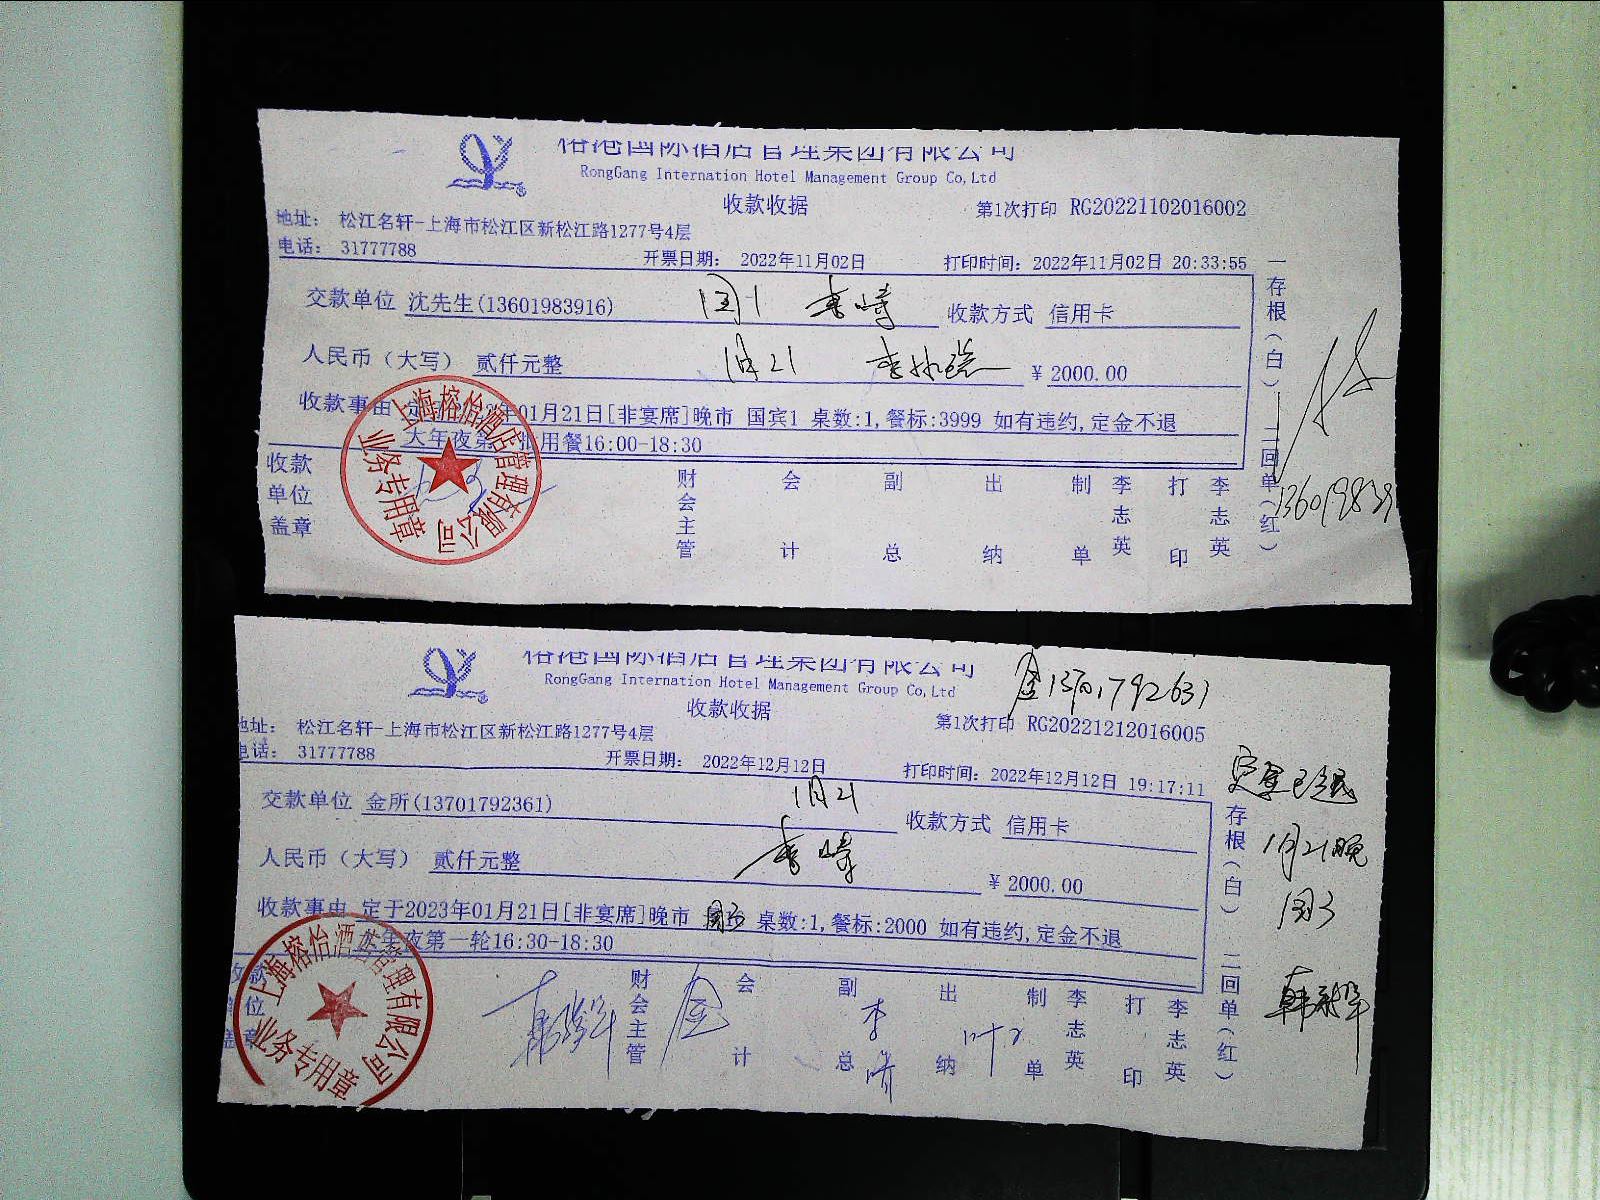 榕港国际酒店管理集团有限公司
RongGang Internation Hotel Management Group Co,Ltd
收款收据
第1次打印 RG20221102016002
地址: 松江名轩-上海市松江区新松江路1277号4层
电话: 31777788
开票日期: 2022年11月02日
打印时间: 2022年11月02日 20:33:55
交款单位 沈先生(13601983916)
国1
收款方式 信用卡
人民币（大写） 贰仟元整
1月21
¥ 2000.00
收款事由
年01月21日[非宴席]晚市 国宾1 桌数:1,餐标:3999 如有违约,定金不退
大年夜第 批用餐16:00-18:30
收款单位盖章
财会主管 会计 副总 出纳 制单 李志英 打印 李志英
一存根（白）——二回单（红）
上海榕怡酒店管理有限公司
业务专用章
榕港国际酒店管理集团有限公司
RongGang Internation Hotel Management Group Co,Ltd
金13701792631
收款收据
第1次打印 RG20221212016005
地址: 松江名轩-上海市松江区新松江路1277号4层
电话: 31777788
开票日期: 2022年12月12日
打印时间: 2022年12月12日 19:17:11
交款单位 金所(13701792361)
1月21
收款方式 信用卡
人民币（大写） 贰仟元整
¥ 2000.00
收款事由 定于2023年01月21日[非宴席]晚市 国3 桌数:1,餐标:2000 如有违约,定金不退
大年夜第一轮16:30-18:30
收款单位盖章
财会主管 金 会计 副总 李 出纳 制单 李志英 打印 李志英
存根（白） 二回单（红）
1月21晚
国3
上海榕怡酒店管理有限公司
业务专用章